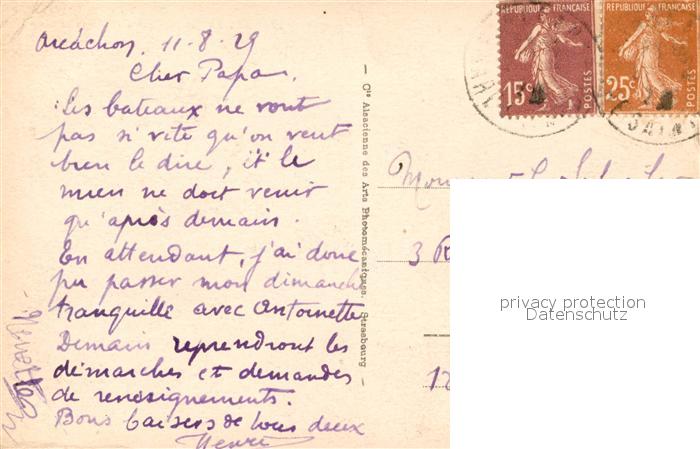 Arcachon, 11-8-29
Cher Papa,
Les bateaux ne vont
pas si vite qu'on veut
bien le dire, et le
mien ne doit venir
qu'après demain.
En attendant, j'ai donc
pu passer mon dimanche
tranquille avec Antoinette
Demain reprendront les
démarches et demandes
de renseignements.
Bons baisers de tous deux
Henri
Cie Alsacienne des Arts Photomécaniques, Strasbourg
REPUBLIQUE FRANÇAISE
15c
POSTES
REPUBLIQUE FRANÇAISE
25c
POSTES
3
privacy protection
Datenschutz